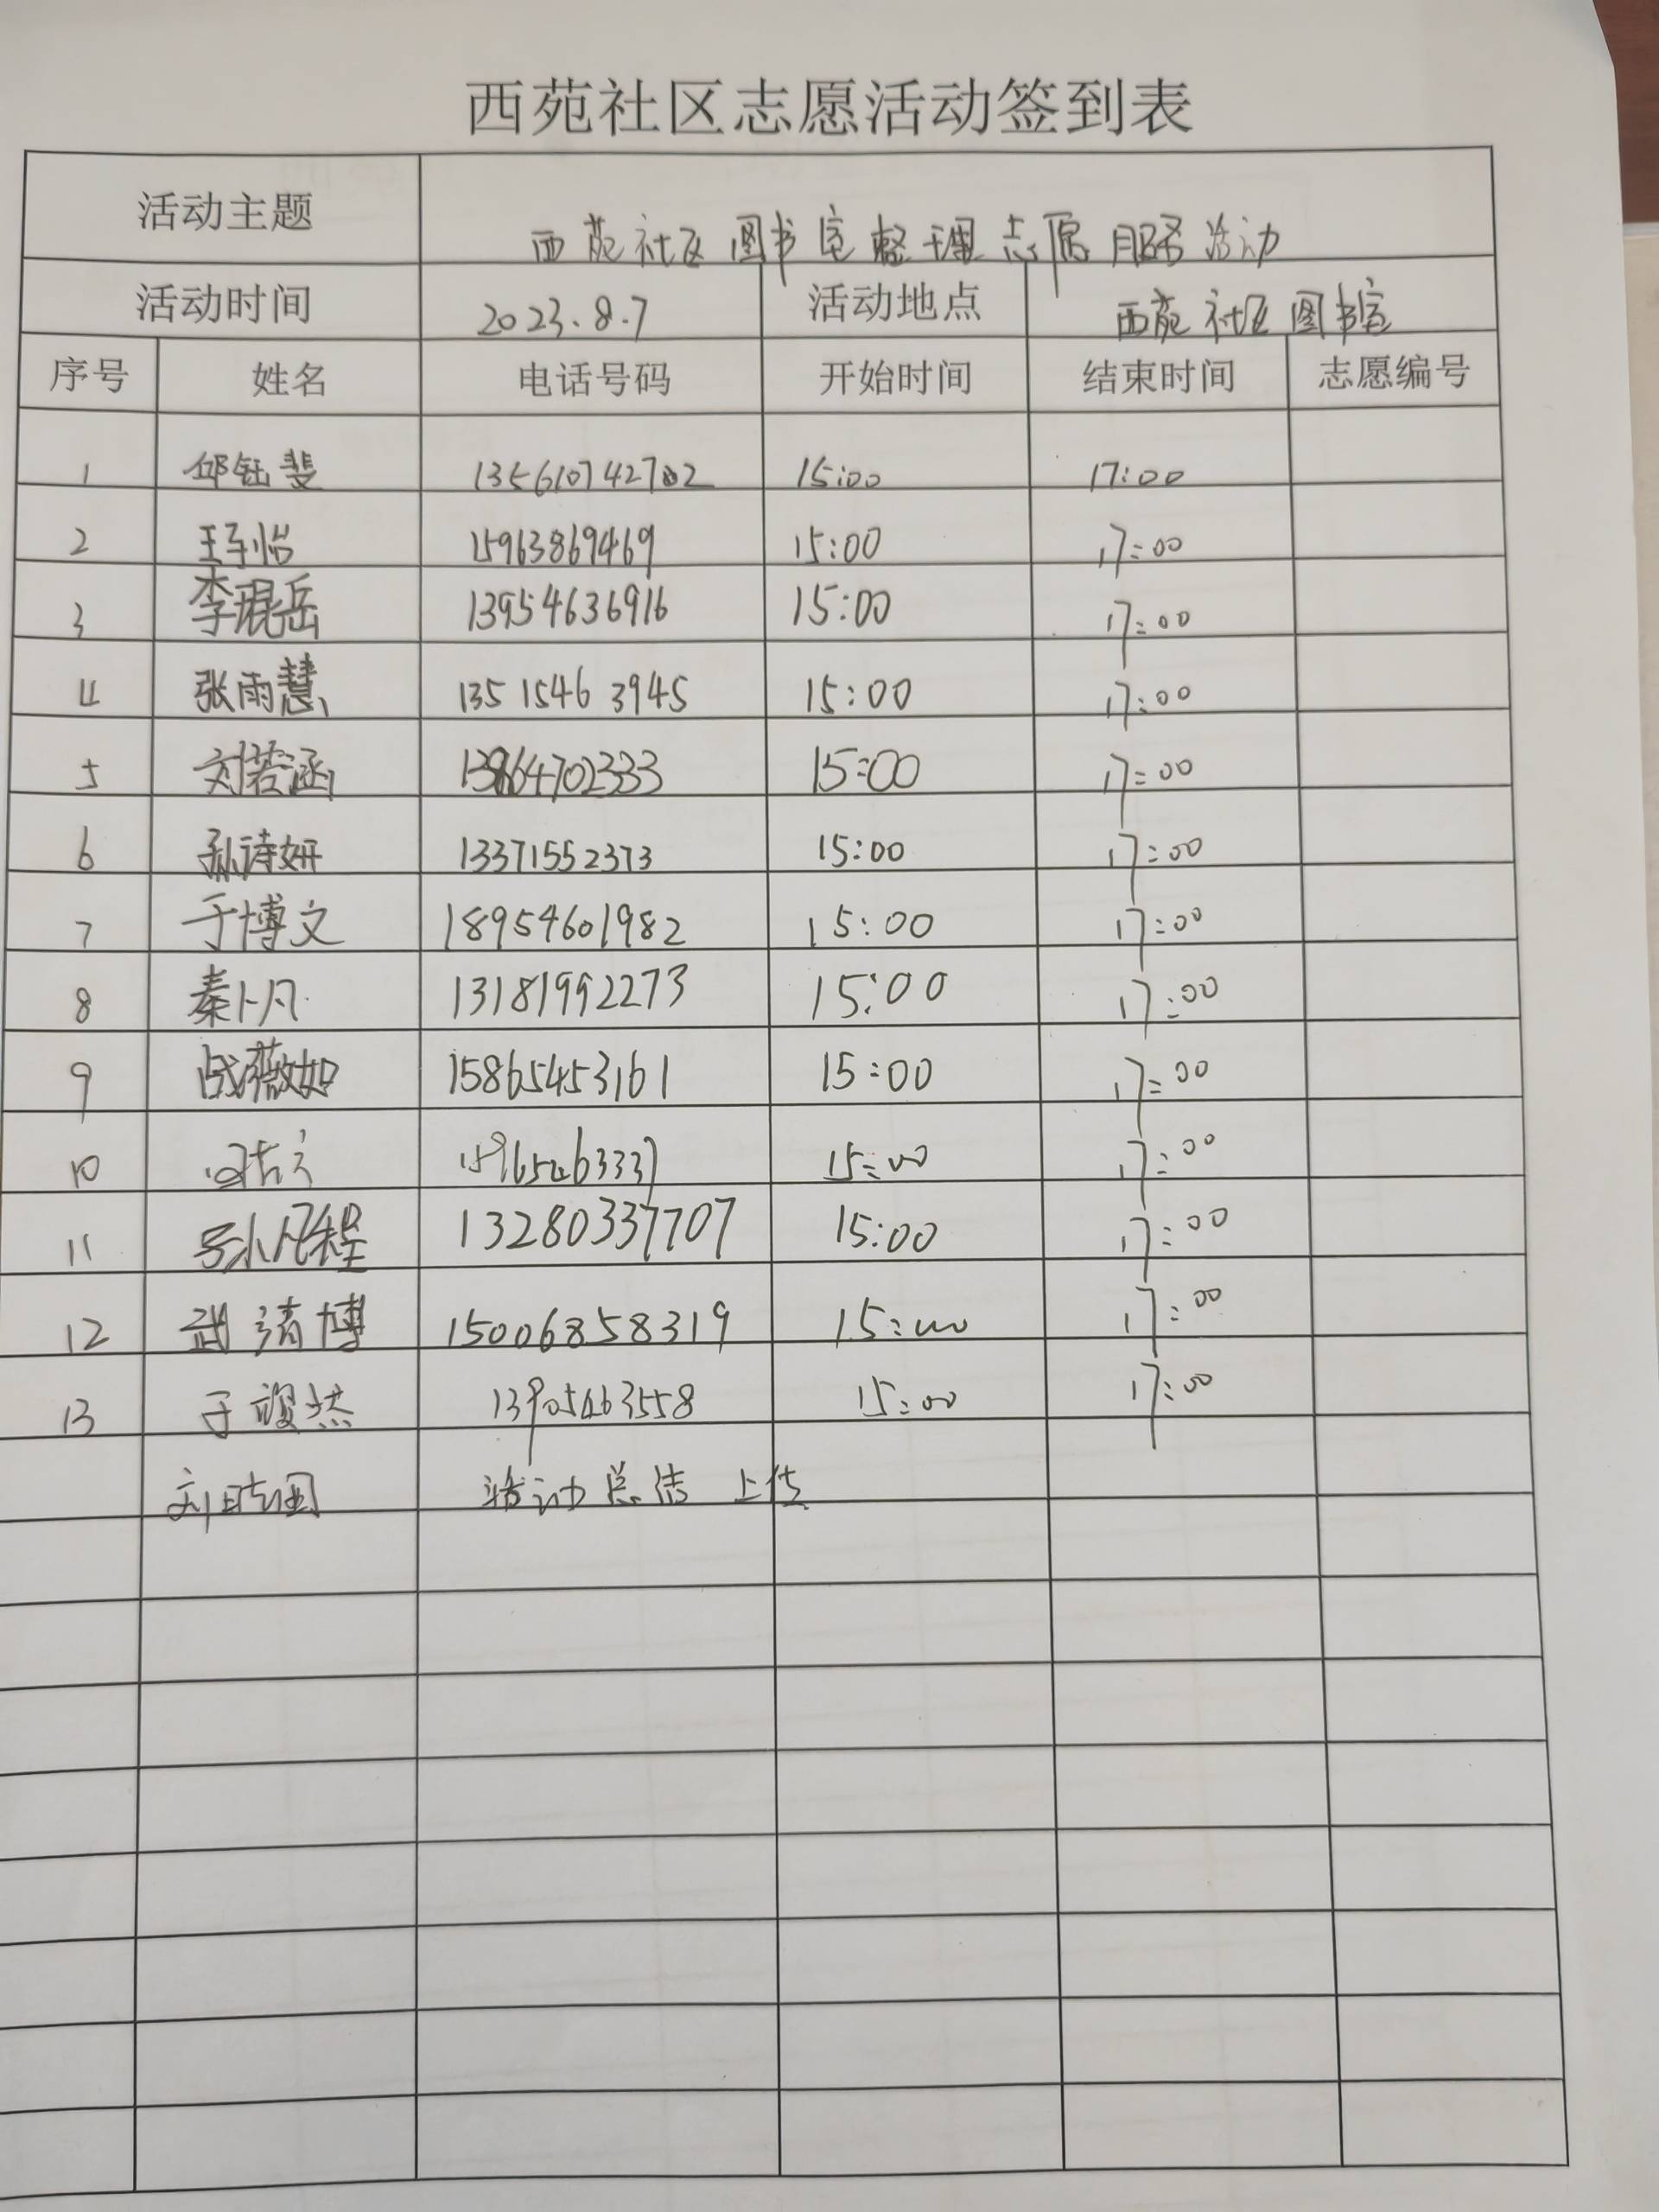 西苑社区志愿活动签到表
活动主题 西苑社区图书室整理志愿服务活动
活动时间 2023.8.7 活动地点 西苑社区图书室
序号 姓名 电话号码 开始时间 结束时间 志愿编号
1 邱钰斐 15:00 17:00
2 王予怡 15963869469 15:00 17:00
3 李琨岳 13954636916 15:00 17:00
4 张雨慧 135 1546 3945 15:00 17:00
5 刘若涵 13864702333 15:00 17:00
6 孙诗妍 13371552373 15:00 17:00
7 于博文 18954601982 15:00 17:00
8 秦卜凡 13181992273 15:00 17:00
9 战薇如 15865453161 15:00 17:00
10 15:00 17:00
11 张凡程 13280337707 15:00 17:00
12 武靖博 15006858319 15:00 17:00
13 13905463558 15:00 17:00
活动总结 上传